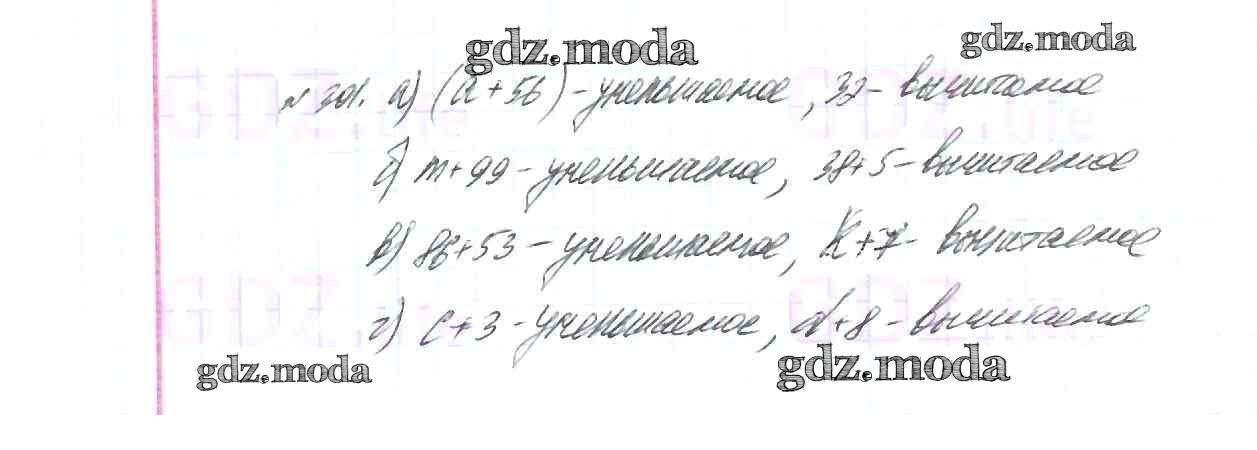 gdz.moda gdz.moda
№ 301. а) (a+56) - уменьшаемое, 32 - вычитаемое
б) m+99 - уменьшаемое, 38+5 - вычитаемое
в) 86+53 - уменьшаемое, K+7 - вычитаемое
г) c+3 - уменьшаемое, d+8 - вычитаемое
gdz.moda gdz.moda